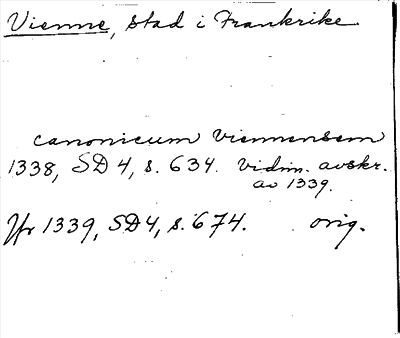 Vienne, stad i Frankrike.
canonicum Viennensem
1338, SD 4, s. 634. Vidim. avskr.
av 1339.
Jfr 1339, SD4, s. 674. orig.